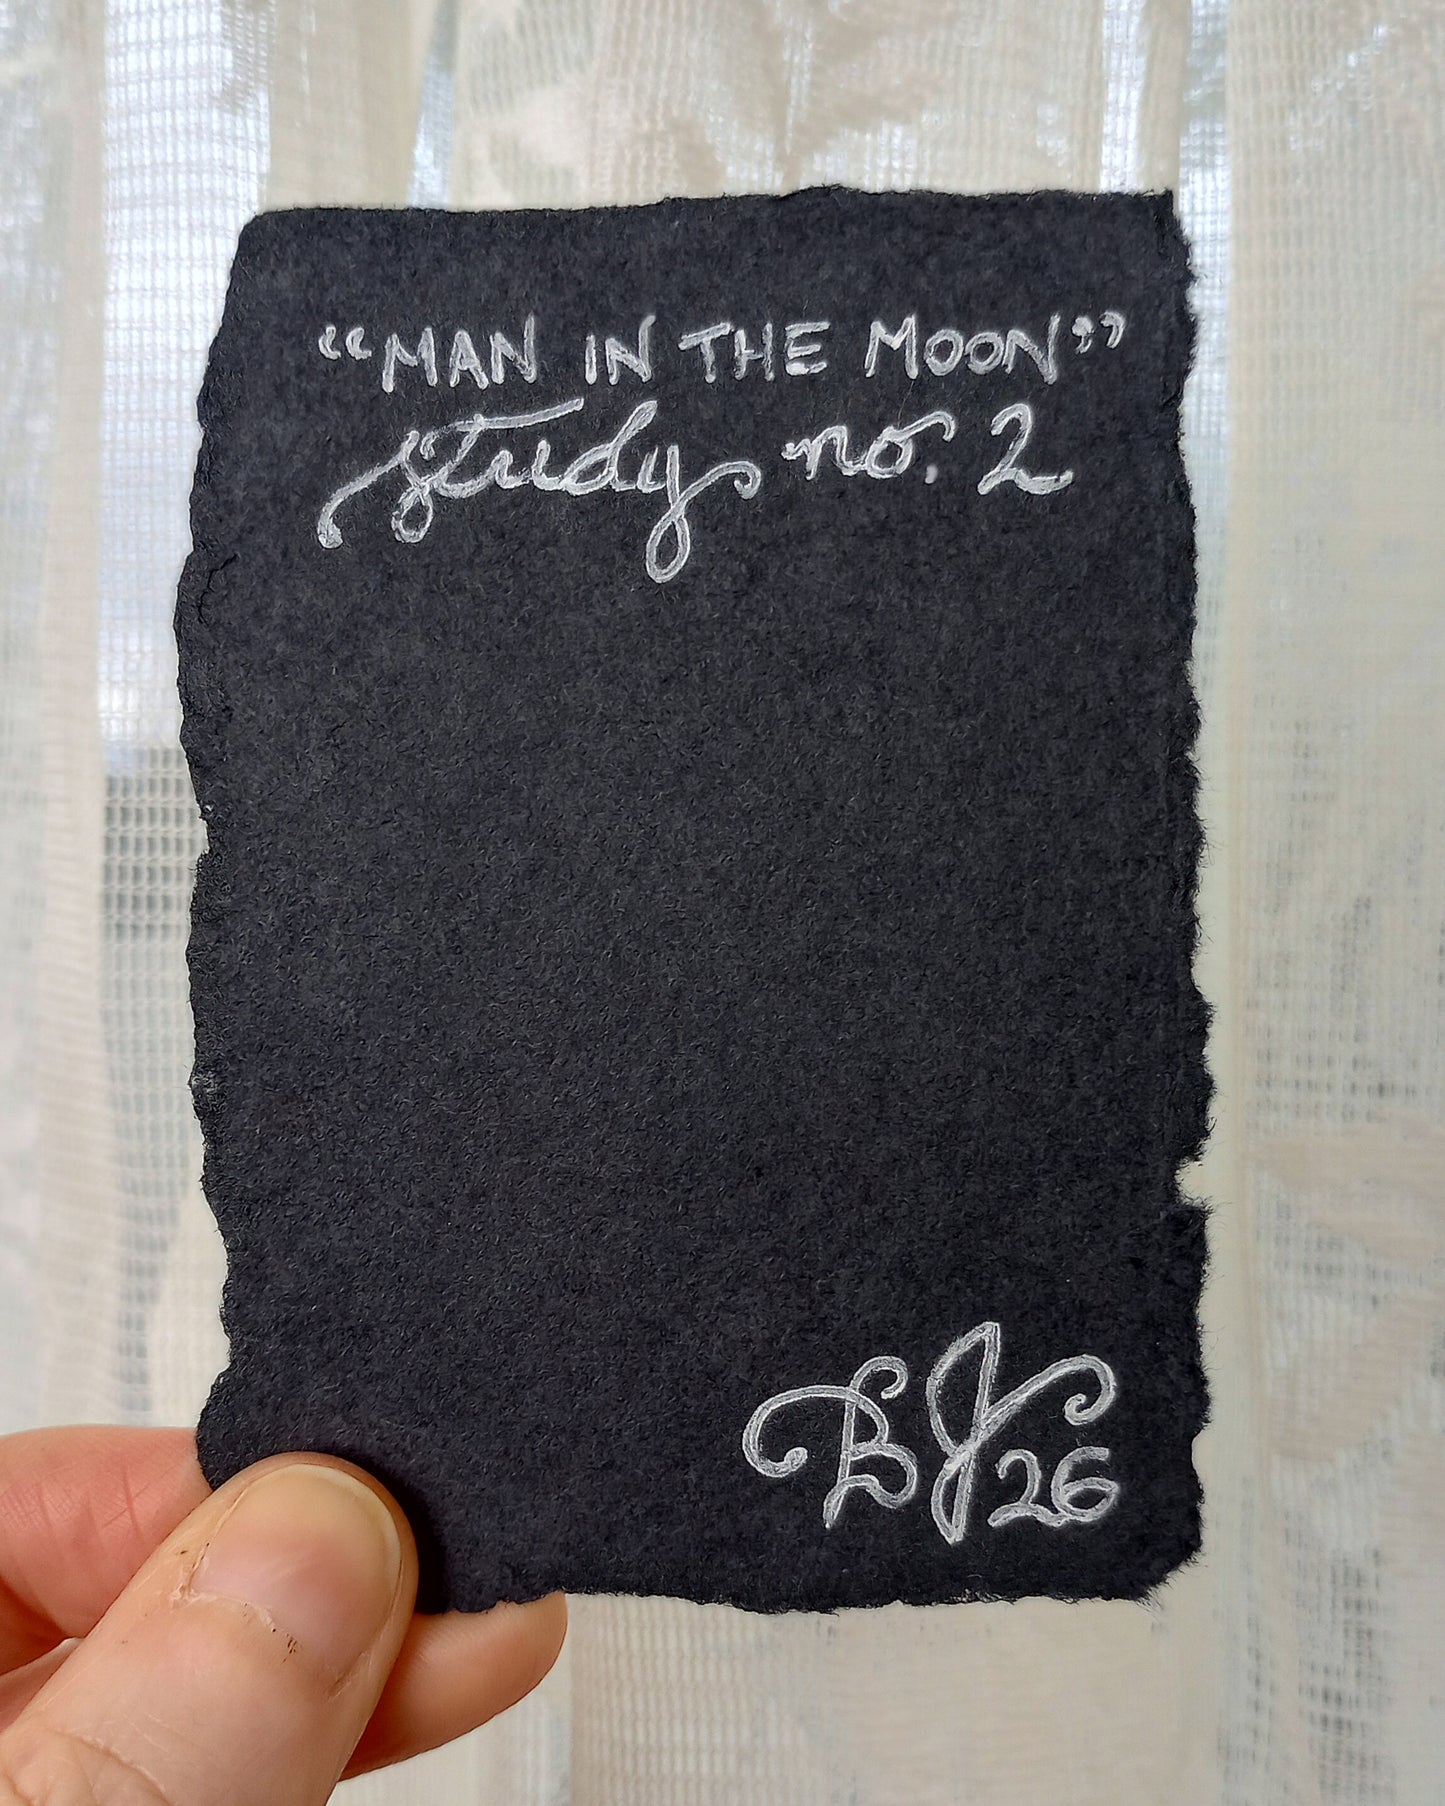 “MAN IN THE MOON”
study no. 2
BJ 26